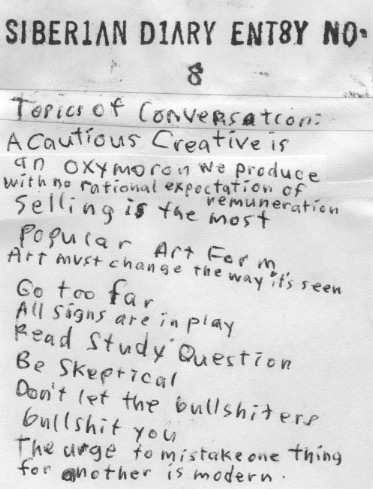 SIBER1AN D1ARY ENT8Y NO.
8
Topics of Conversation:
A Cautious Creative is
an oxymoron we produce
with no rational expectation of
remuneration
Selling is the most
Popular Art Form
Art must change the way it's seen
Go too far
All signs are in play
Read Study Question
Be Skeptical
Don't let the bullshiters
bullshit you
The urge to mistake one thing
for another is modern.